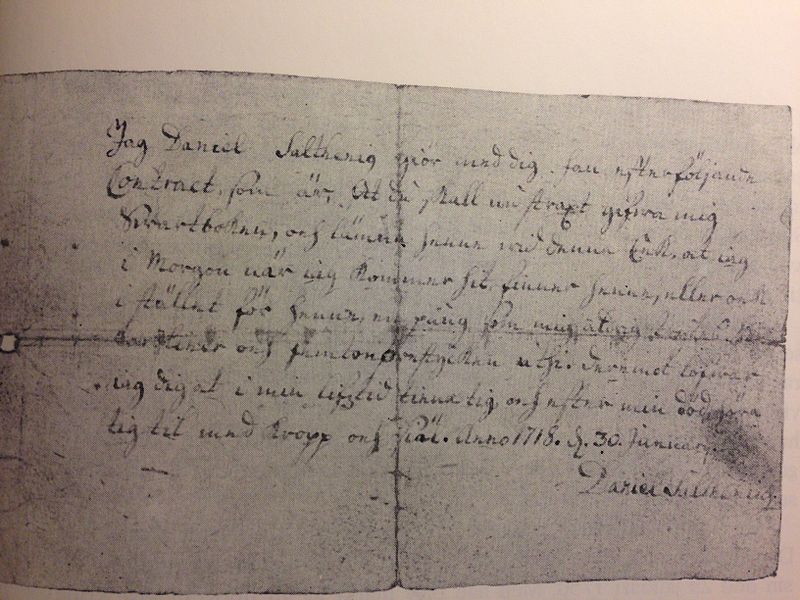 Jag Daniel Salthenig giör med dig fan efterföljande
Contract, som är, at du skall nu straxt gifwa mig
Swartboken, och lämna henne wid denna Eek, at iag
i Morgon när iag kommer hit, finner henne, eller ock
i stället för henne, en pung som mig aldrig
och femton utj. deremot lofwar
iag dig at i min lifstid tiena tig och efter min död höra
tig til med kropp och siäl. Anno 1718. d. 30. Januarj.
Daniel Salthenig